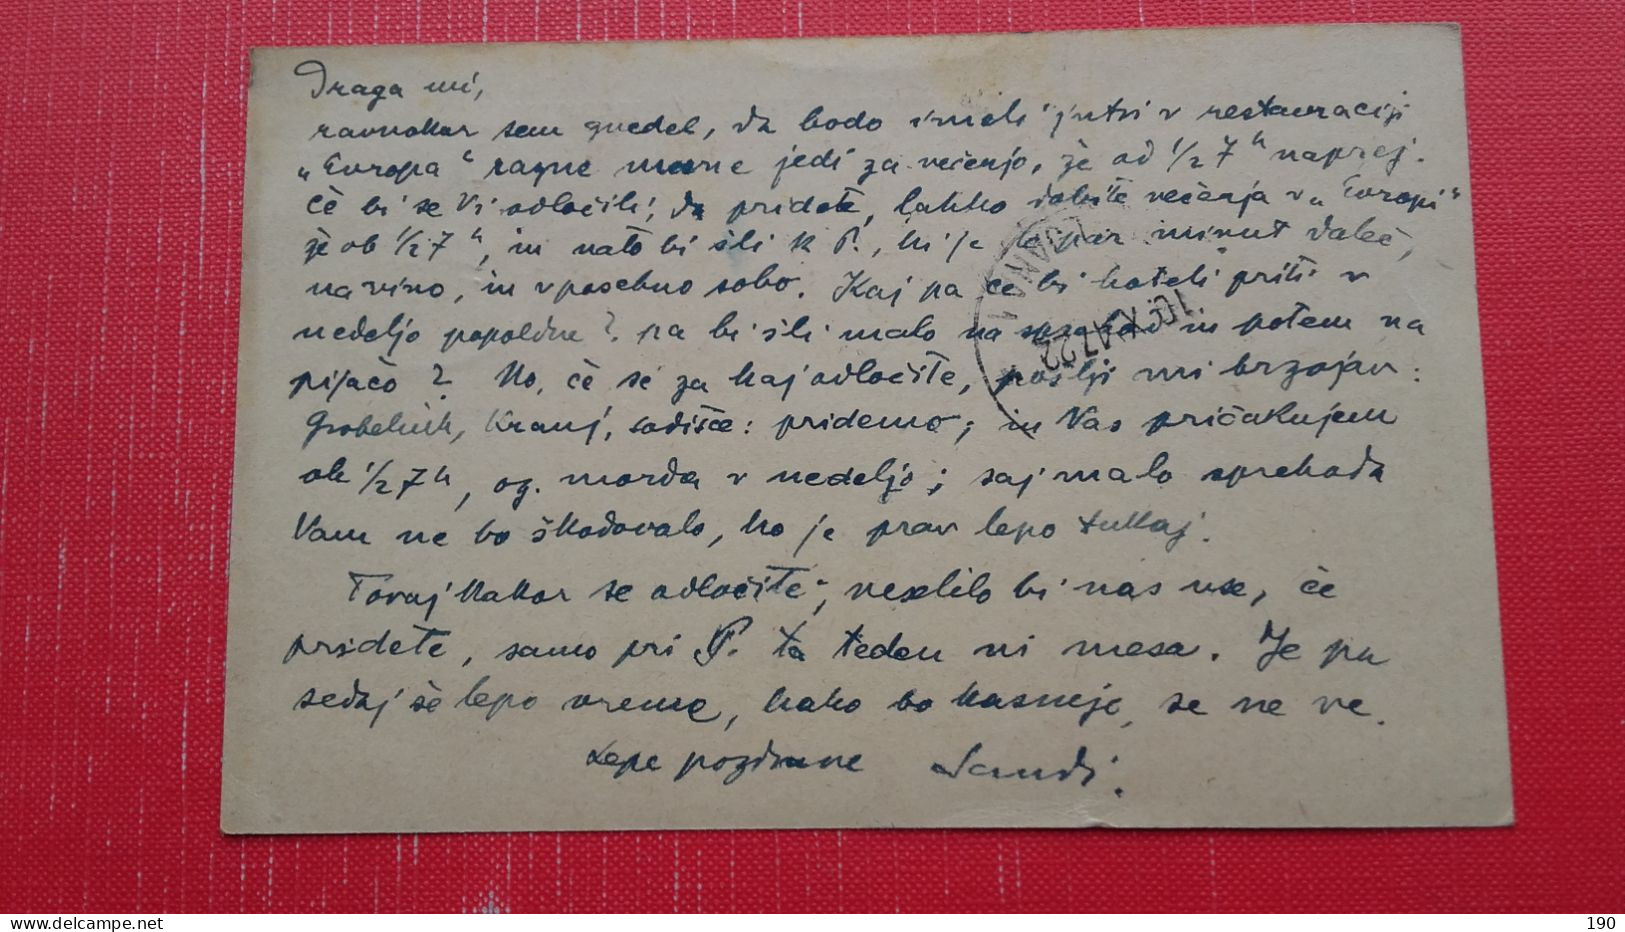 Draga mi,
ravnokar sem zvedel, da bodo imeli jutri v restavraciji
„Evropa“ razne mesne jedi za večerjo, že od 1/2 7h naprej.
Če bi se Vi odločili, da pridete, lahko dobite večerja v „Evropi“
že ob 1/2 7h, in nato bi šli k P., ki je le par minut daleč,
na vino, in v posebno sobo. Kaj pa če bi hoteli priti v
nedeljo popoldne? pa bi šli malo na sprehod in potem na
pijačo? No, če se za kaj odločite, pošlji mi brzojav:
Grobelnik, Kranj, sodišče: pridemo; in Vas pričakujem
ob 1/2 7h, oz. morda v nedeljo; saj malo sprehoda
Vam ne bo škodovalo, ko je prav lepo tukaj.
Torej kakor se odločite, veselilo bi nas vse, če
pridete, samo pri P. ta teden ni mesa. Je pa
sedaj še lepo vreme, kako bo kasneje, se ne ve.
Lepe pozdrave Sandi.
190